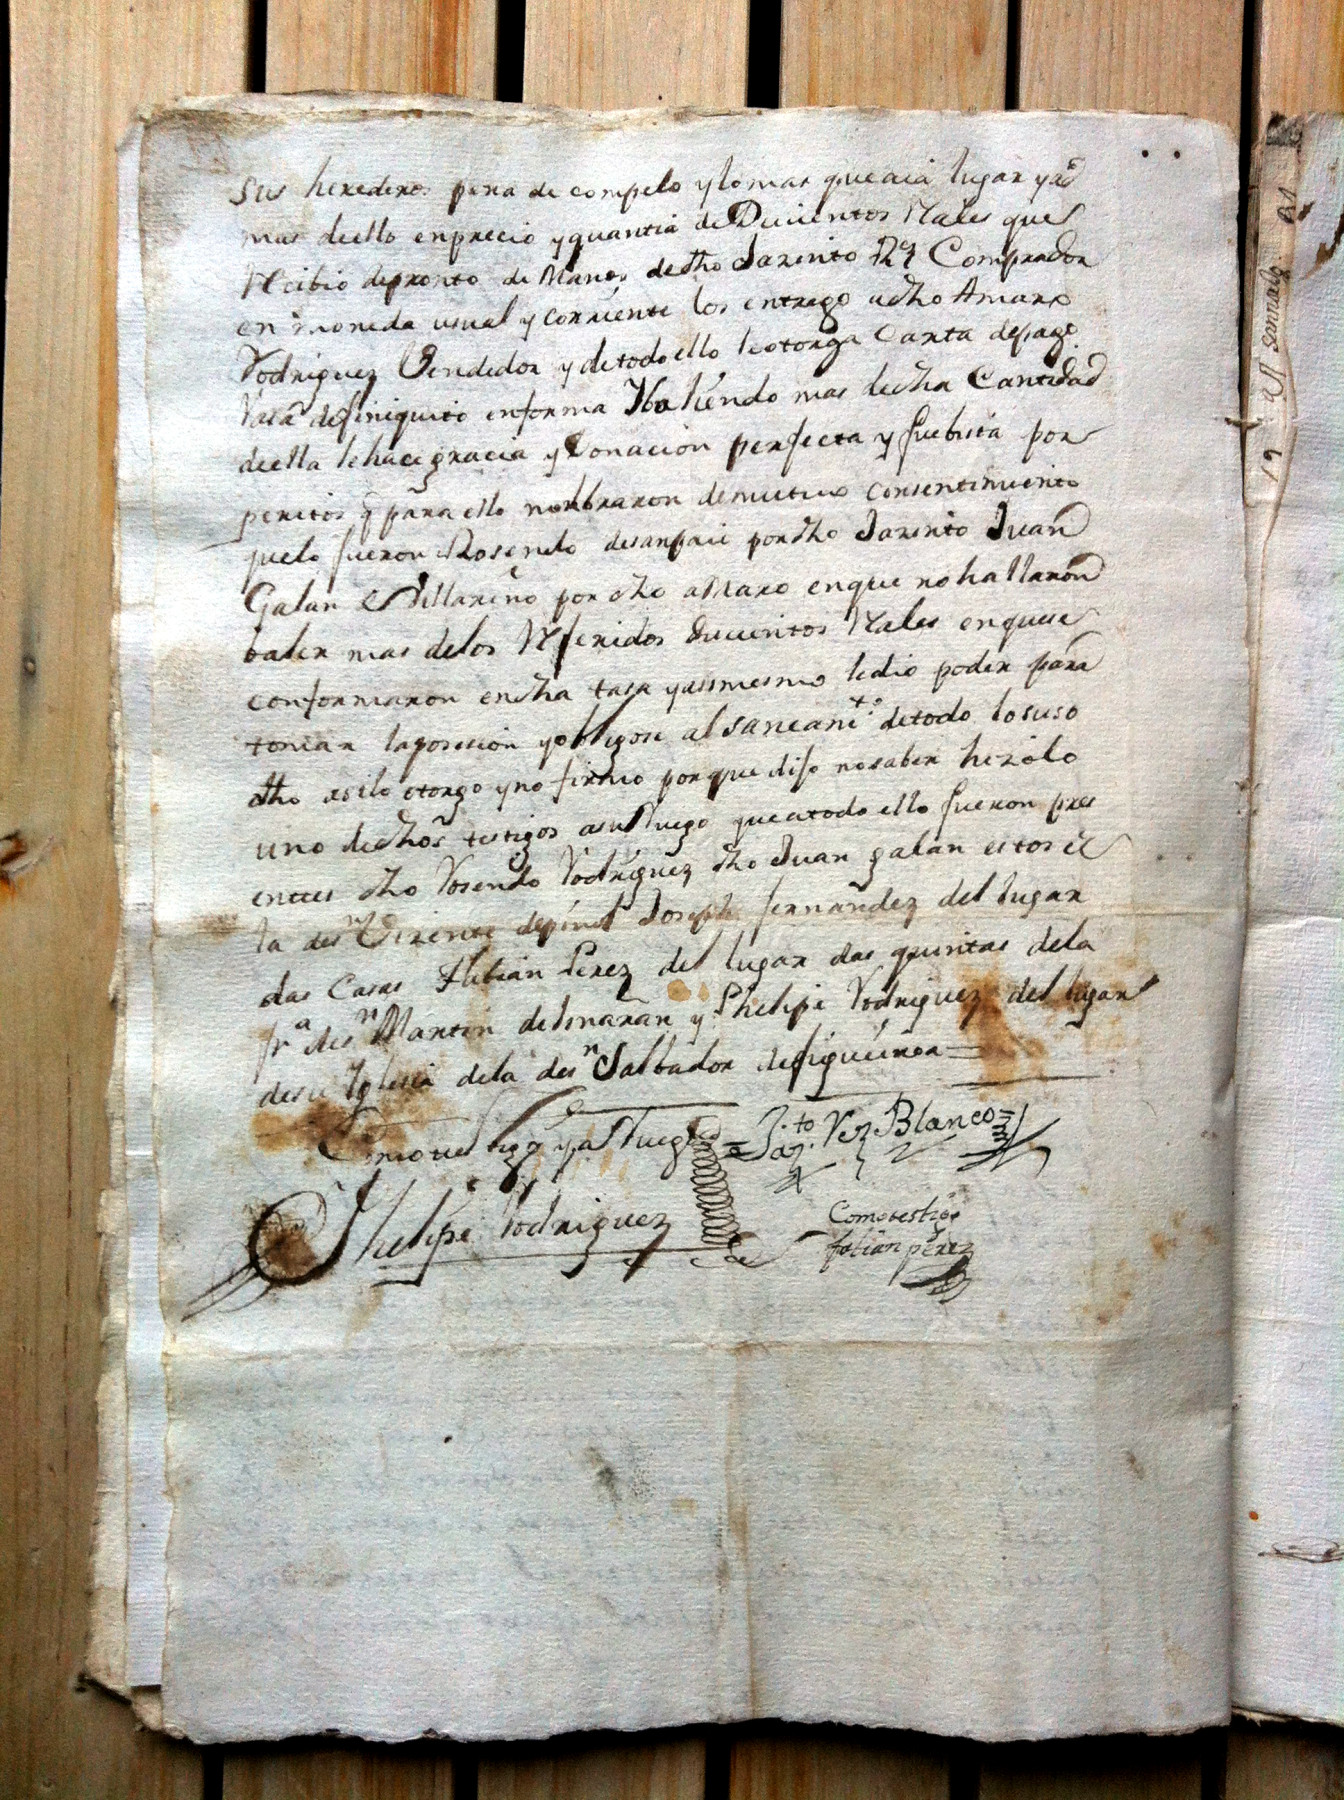 sus herederos pena de compelo y lo mas que aia lugar y
mas de ello en precio y quantia de Ducientos Rales que
Recibio de pronto de Manos de dho Jazinto Rz Comprador
en moneda usual y corriente los entrego a dho Amaro
Rodriguez Vendedor y de todo ello le otorga Carta de pago
de finiquito en forma Ybaliendo mas de dha Cantidad
de ella le hace gracia y Donacion perfecta y fue bista por
peritos q para ello nombraron de mutuo consentimiento
que lo fueron Rosendo por dho Jazinto Juan
Galan por dho Amaro en que no hallaron
baler mas de los Referidos Ducientos Rales en que se
conformaron en dha tasa y asimesmo le dio poder para
tomar la posesion y obligose al saneamto de todo lo suso
dho asi lo otorgo y no firmo porque dijo no saber hizolo
uno de dhos testigos a su Ruego que a todo ello fueron pres
entes dho Rosendo Rodriguez dho Juan galan estos de
la de sn Vizente de pinol Joseph fernandez del lugar
das Casas Fabian Perez del lugar das quintas de la
fra de sn Martin de y Phelipe Rodriguez del lugar
de su Yglesia de la de sn Salbador de figueiroa =
Como testigo y a Ruego = Jazto Rez Blanco =
Phelipe Rodriguez
Como testigo
fabian perez
19